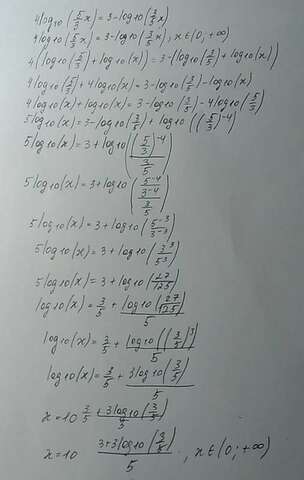 4log10(5/3 x) = 3-log10(3/5 x)
4log10(5/3 x) = 3-log10(3/5 x), x∈(0; +∞)
4(log10(5/3) + log10(x)) = 3-(log10(3/5) + log10(x))
4log10(5/3) + 4log10(x) = 3-log10(3/5) - log10(x)
4log10(x) + log10(x) = 3-log10(3/5) - 4log10(5/3)
5log10(x) = 3-log10(3/5) + log10((5/3)^-4)
5log10(x) = 3 + log10((5/3)^-4 / (3/5))
5log10(x) = 3 + log10((5^-4/3^-4) / (3/5))
5log10(x) = 3 + log10(5^-3/3^-3)
5log10(x) = 3 + log10(3^3/5^3)
5log10(x) = 3 + log10(27/125)
log10(x) = 3/5 + log10(27/125)/5
log10(x) = 3/5 + log10((3/5)^3)/5
log10(x) = 3/5 + 3log10(3/5)/5
x = 10 3/5 + 3log10(3/5)/5
x = 10 3+3log10(3/5)/5, x∈(0; +∞)